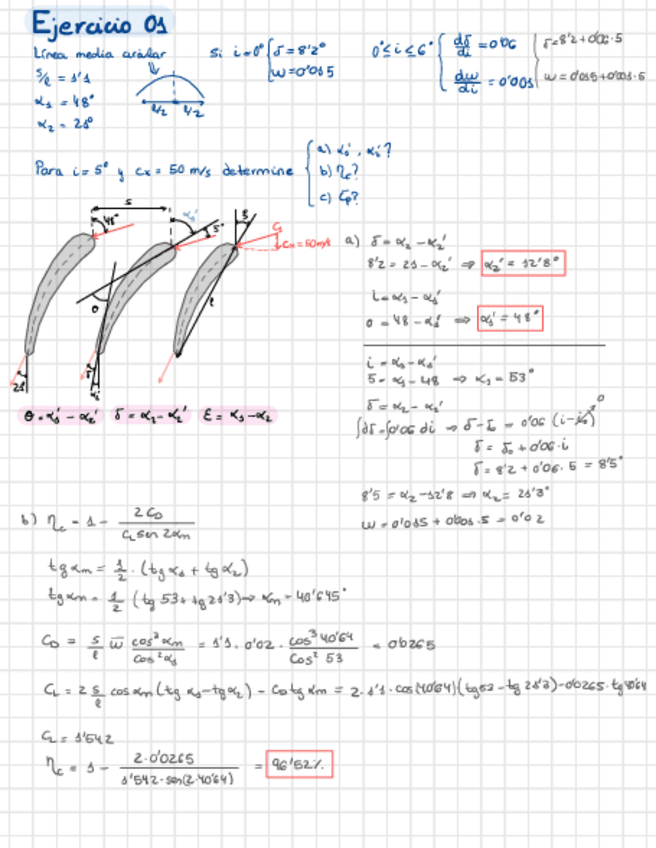 Ejercicio 01
Línea media circular
s/l = 1'1
α1 = 48°
α2 = 21°
l/2 l/2
Si i=0° { δ = 8'2° ω = 0'015
0° ≤ i ≤ 6° { dδ/di = 0'06 dω/di = 0'001
δ = 8'2 + 0'06·5
ω = 0'015 + 0'001·5
Para i = 5° y cx = 50 m/s determine
a) α1', α2'?
b) ηc?
c) Cp?
s
48°
α1'
5°
c1
cx = 50 m/s
θ
l
21°
θ = α1' - α2' δ = α2 - α2' ε = α1 - α2
a) δ = α2 - α2'
8'2 = 21 - α2' ⇒ α2' = 12'8°
i = α1 - α1'
0 = 48 - α1' ⇒ α1' = 48°
i = α1 - α1'
5 = α1 - 48 ⇒ α1 = 53°
δ = α2 - α2'
∫dδ = ∫0'06 di ⇒ δ - δ0 = 0'06 (i - i0) 0
δ = δ0 + 0'06·i
δ = 8'2 + 0'06·5 = 8'5°
8'5 = α2 - 12'8 ⇒ α2 = 21'3°
ω = 0'015 + 0'001·5 = 0'02
b) ηc = 1 - 2 CD / CL sen 2αm
tg αm = 1/2 · (tg α1 + tg α2)
tg αm = 1/2 (tg 53 + tg 21'3) ⇒ αm = 40'645°
CD = s/l ω̄ cos³αm / cos²α1 = 1'1 · 0'02 · cos³ 40'64 / cos² 53 = 0'0265
CL = 2 s/l cos αm (tg α1 - tg α2) - CD tg αm = 2·1'1·cos(40'64)(tg 53 - tg 21'3) - 0'0265·tg 40'64
CL = 1'542
ηc = 1 - 2·0'0265 / 1'542·sen(2·40'64) = 96'52%